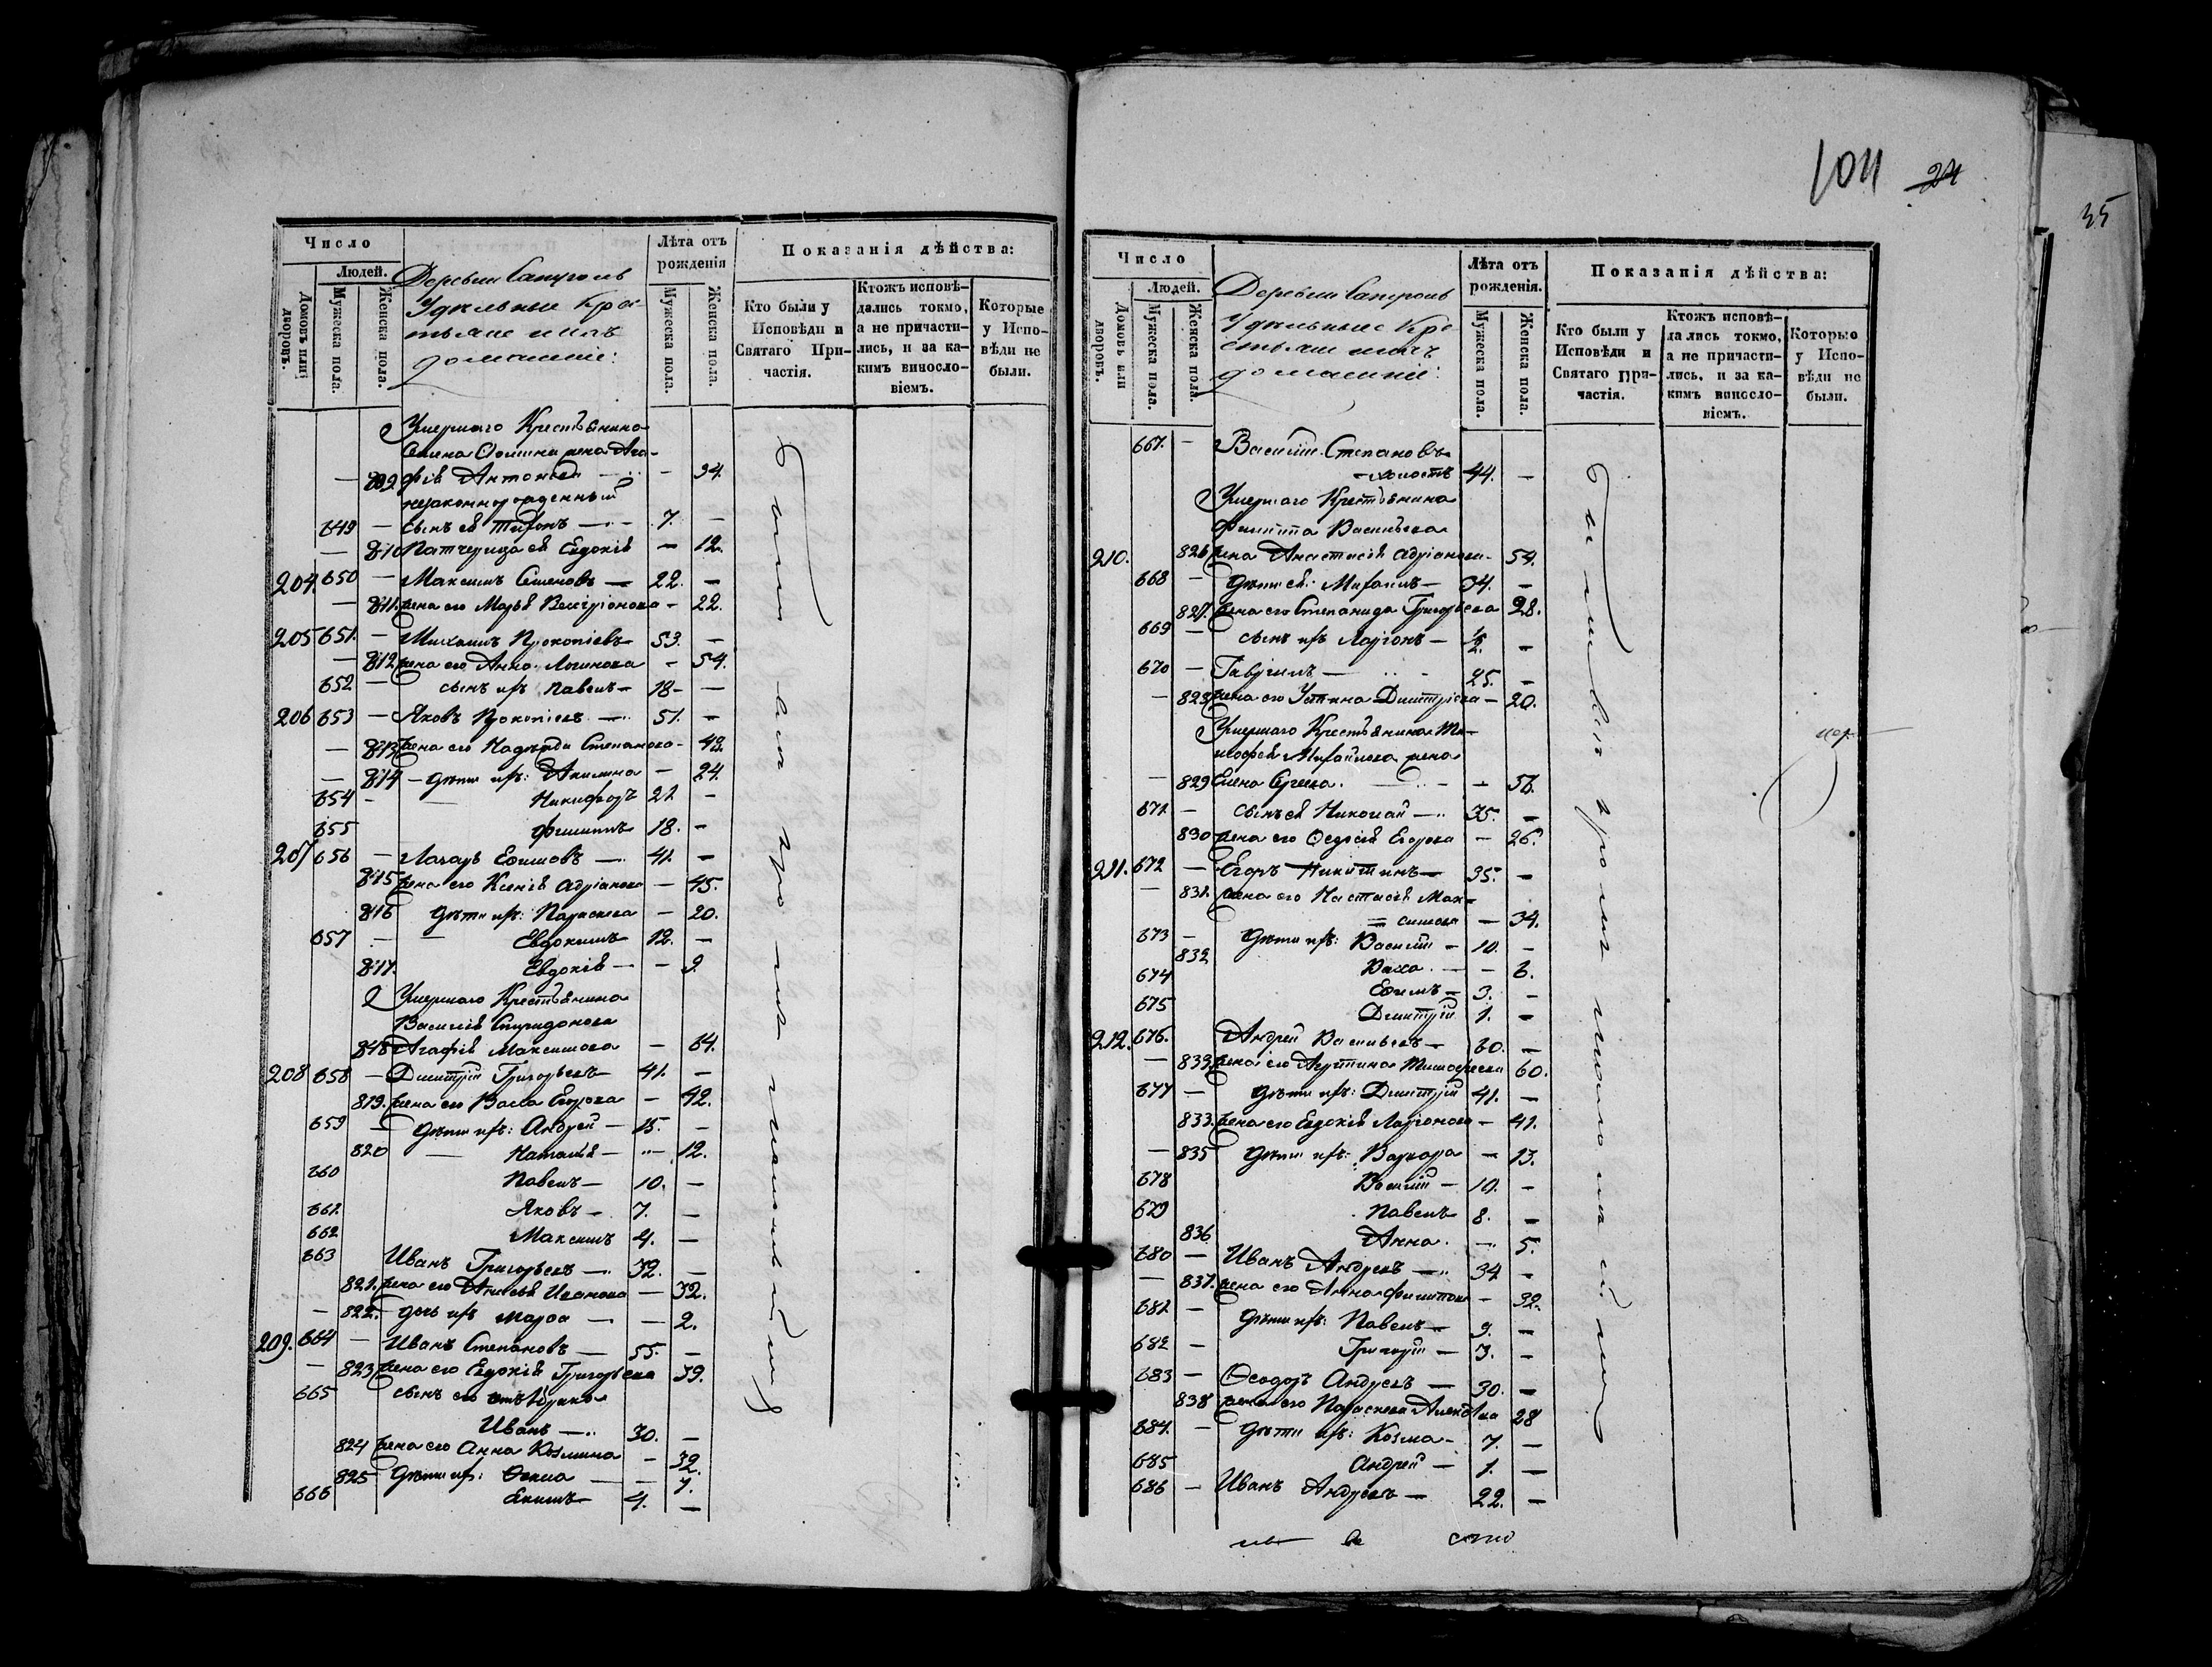 Число
Людей.
Домовъ или дворовъ.
Мужеска пола.
Женска пола.
Деревни
Удѣльные Кре-
стьяне и ихъ
домашніе:
Лѣта отъ рожденія
Мужеска пола.
Женска пола.
Показанія дѣйства:
Кто были у Исповѣди и Святаго При-частія.
Ктожъ исповѣ-дались токмо, а не причасти-лись, и за ка-кимъ винносло-віемъ.
Которые у Испо-вѣди не были.
Умершаго Крестьянина
жена Ага-
— 809 фія Антонова — 34.
незаконнорожденный
649 — сынъ ея Тихонъ — 7. —
— 810 Патчерица ея Евдокія — 12.
204. 650 — Максимъ Семеновъ — 22. —
— 811. жена его Марья — 22.
205 651. — Михаилъ Прокопіевъ 53. —
— 812 жена его Анна Логинова — 54.
652 — сынъ ихъ Павелъ — 18 — —
206 653 — Яковъ Прокопіевъ — 51. —
— 813 жена его Надежда Степанова — 49.
— 814 — дѣти ихъ: Акилина — 24.
654 — Никифоръ 21 —
655 Филиппъ 18. —
207 656 — Лазарь Ефимовъ — 41. —
815 жена его Ксенія Адріанова — 45.
816 дѣти ихъ: Параскева — 20.
657 — Евдокимъ 12. —
817. Евдокія — — 9.
Умершаго Крестьянина
Василія Спиридонова
818 Агафія Максимова — 64.
208 658 — Димитрій Григорьевъ 41. —
819. жена его Васса Егорова — 42.
659 — дѣти ихъ: Андрей — 15. —
820 — Наталія — — 12.
660 Павелъ — 10. —
661. Яковъ — 7. —
662 Максимъ 4. —
663 Иванъ Григорьевъ — 32. —
821. жена его Анисья Иванова — 32.
— 822. — дочь ихъ Марѳа — — 2.
209. 664 — Иванъ Степановъ — 55. —
— 823 жена его Евдокія Григорьева 39.
665 сынъ его
Иванъ — 30. —
824 жена его Анна Козмина — 32.
825 дѣти ихъ: Ѳекла — — 7.
666 Екимъ — 4. —
104 24
35
Число
Людей.
Домовъ или дворовъ.
Мужеска пола.
Женска пола.
Деревни
Удѣльные Кре-
стьяне и ихъ
домашніе:
Лѣта отъ рожденія.
Мужеска пола.
Женска пола.
Показанія дѣйства:
Кто были у Исповѣди и Святаго При-частія.
Ктожъ исповѣ-дались токмо, а не причасти-лись, и за ка-кимъ винносло-віемъ.
Которые у Испо-вѣди не были.
667. — Василій Степановъ
— холостъ 44. —
Умершаго Крестьянина
Филиппа Васильева
210. 826 жена Анастасія Адріанова — 54.
668 — дѣти ея: Михаилъ — 34. —
827. жена его Степанида Григорьева 28.
669 — сынъ ихъ Ларіонъ — ½. —
670 — Гавріилъ — 25. —
— 828 жена его Устина Димитріева — 20.
Умершаго Крестьянина Ти-
моѳея Михайлова жена
— 829 Елена — 56.
671 — сынъ ея Николай — 35. —
830 жена его Ѳедосія Егорова — 26.
211. 672 — Егоръ Никитинъ — 35. —
— 831. жена его Настасія Мак-
= симова — 34.
673 — дѣти ихъ: Василій — 10. —
832 Васса — — 6.
674 Ефимъ — 3. —
675 Димитрій 1. —
212. 676. Андрей Васильевъ — 60. —
— 833. жена его Агрипина Тимоѳеева 60.
677 — дѣти ихъ: Димитрій 41. —
833. жена его Евдокія Ларіонова — 41.
— 835 дѣти ихъ: Варвара — 13.
678 Василій — 10. —
679 Павелъ 8. —
836 Анна — 5.
680 — Иванъ Андреевъ — 34 —
— 837. жена его Анна Филиппова — 32.
681 — дѣти ихъ: Павелъ — 9. —
682 — Григорій — 3. —
683 — Ѳеодоръ Андреевъ — 30. —
838 жена его Параскева 28
684. — дѣти ихъ: Козма — 7. —
685 Андрей — 1. —
686 — Иванъ Андреевъ — 22. —